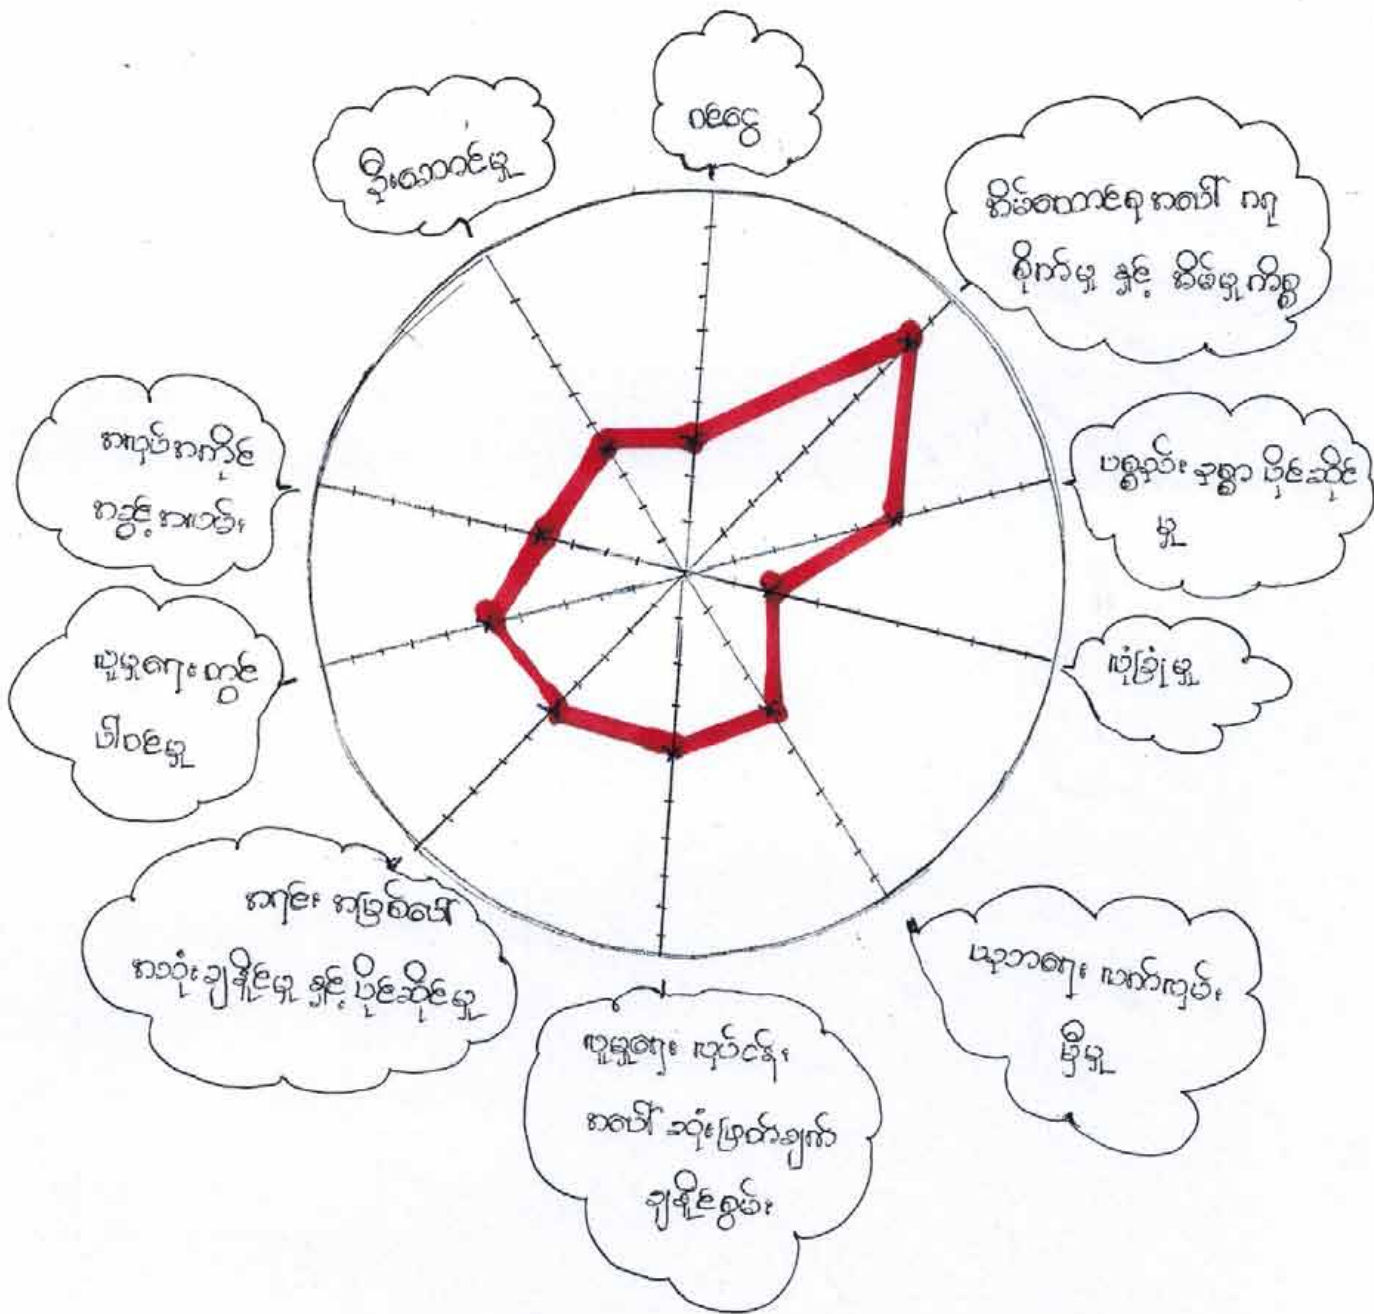 ဝင်ငွေ
အိမ်ထောင်ရေအပေါ် ဂရု
စိုက်မှု နှင့် အိမ်မှုကိစ္စ
ပစ္စည်း ဥစ္စာ ပိုင်ဆိုင်
မှု
လုံခြုံမှု
ပညာရေး လက်လှမ်း
မှီမှု
လူမှုရေး လုပ်ငန်း
အပေါ် ဆုံးဖြတ်ချက်
ချနိုင်စွမ်း
အရင်း အမြစ်ပေါ်
အသုံးချနိုင်မှု နှင့် ပိုင်ဆိုင်မှု
လူမှုရေး တွင်
ပါဝင်မှု
အလုပ်အကိုင်
အခွင့်အလမ်း
ဦးဆောင်မှု